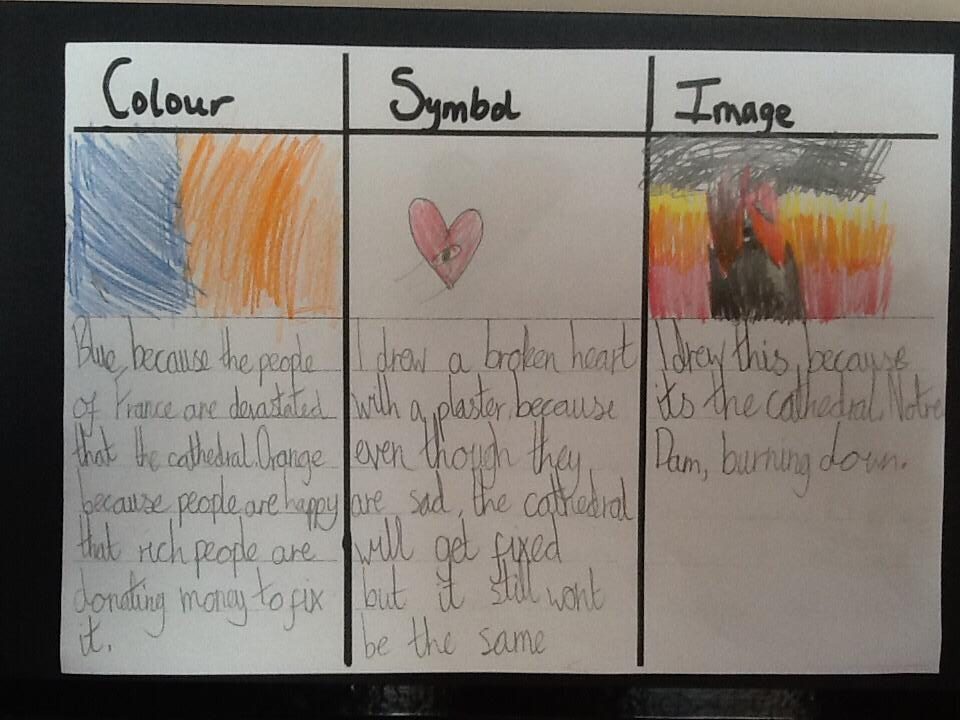 Colour
Blue, because the people
of France are devastated
that the cathedral. Orange
because people are happy
that rich people are
donating money to fix
it.
Symbol
I drew a broken heart
with a plaster, because
even though they
are sad, the cathedral
will get fixed
but it still wont
be the same
Image
I drew this, because
its the cathedral, Notre
Dam, burning down.